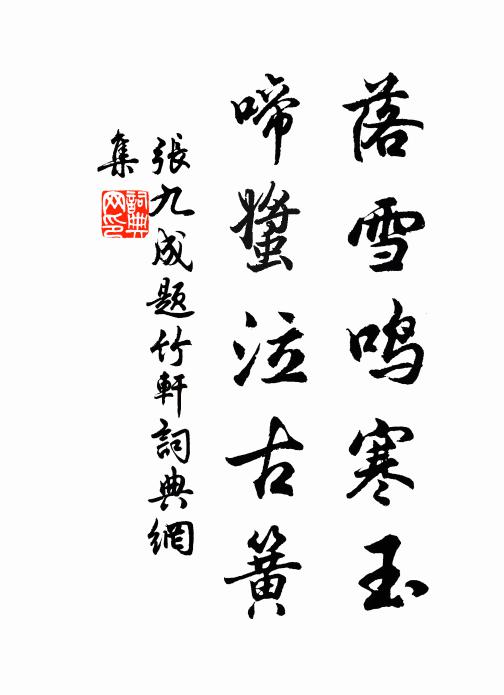 落雪鸣寒玉
啼螀泣古簧
張九成題竹軒詞典網
集
詞典
网印